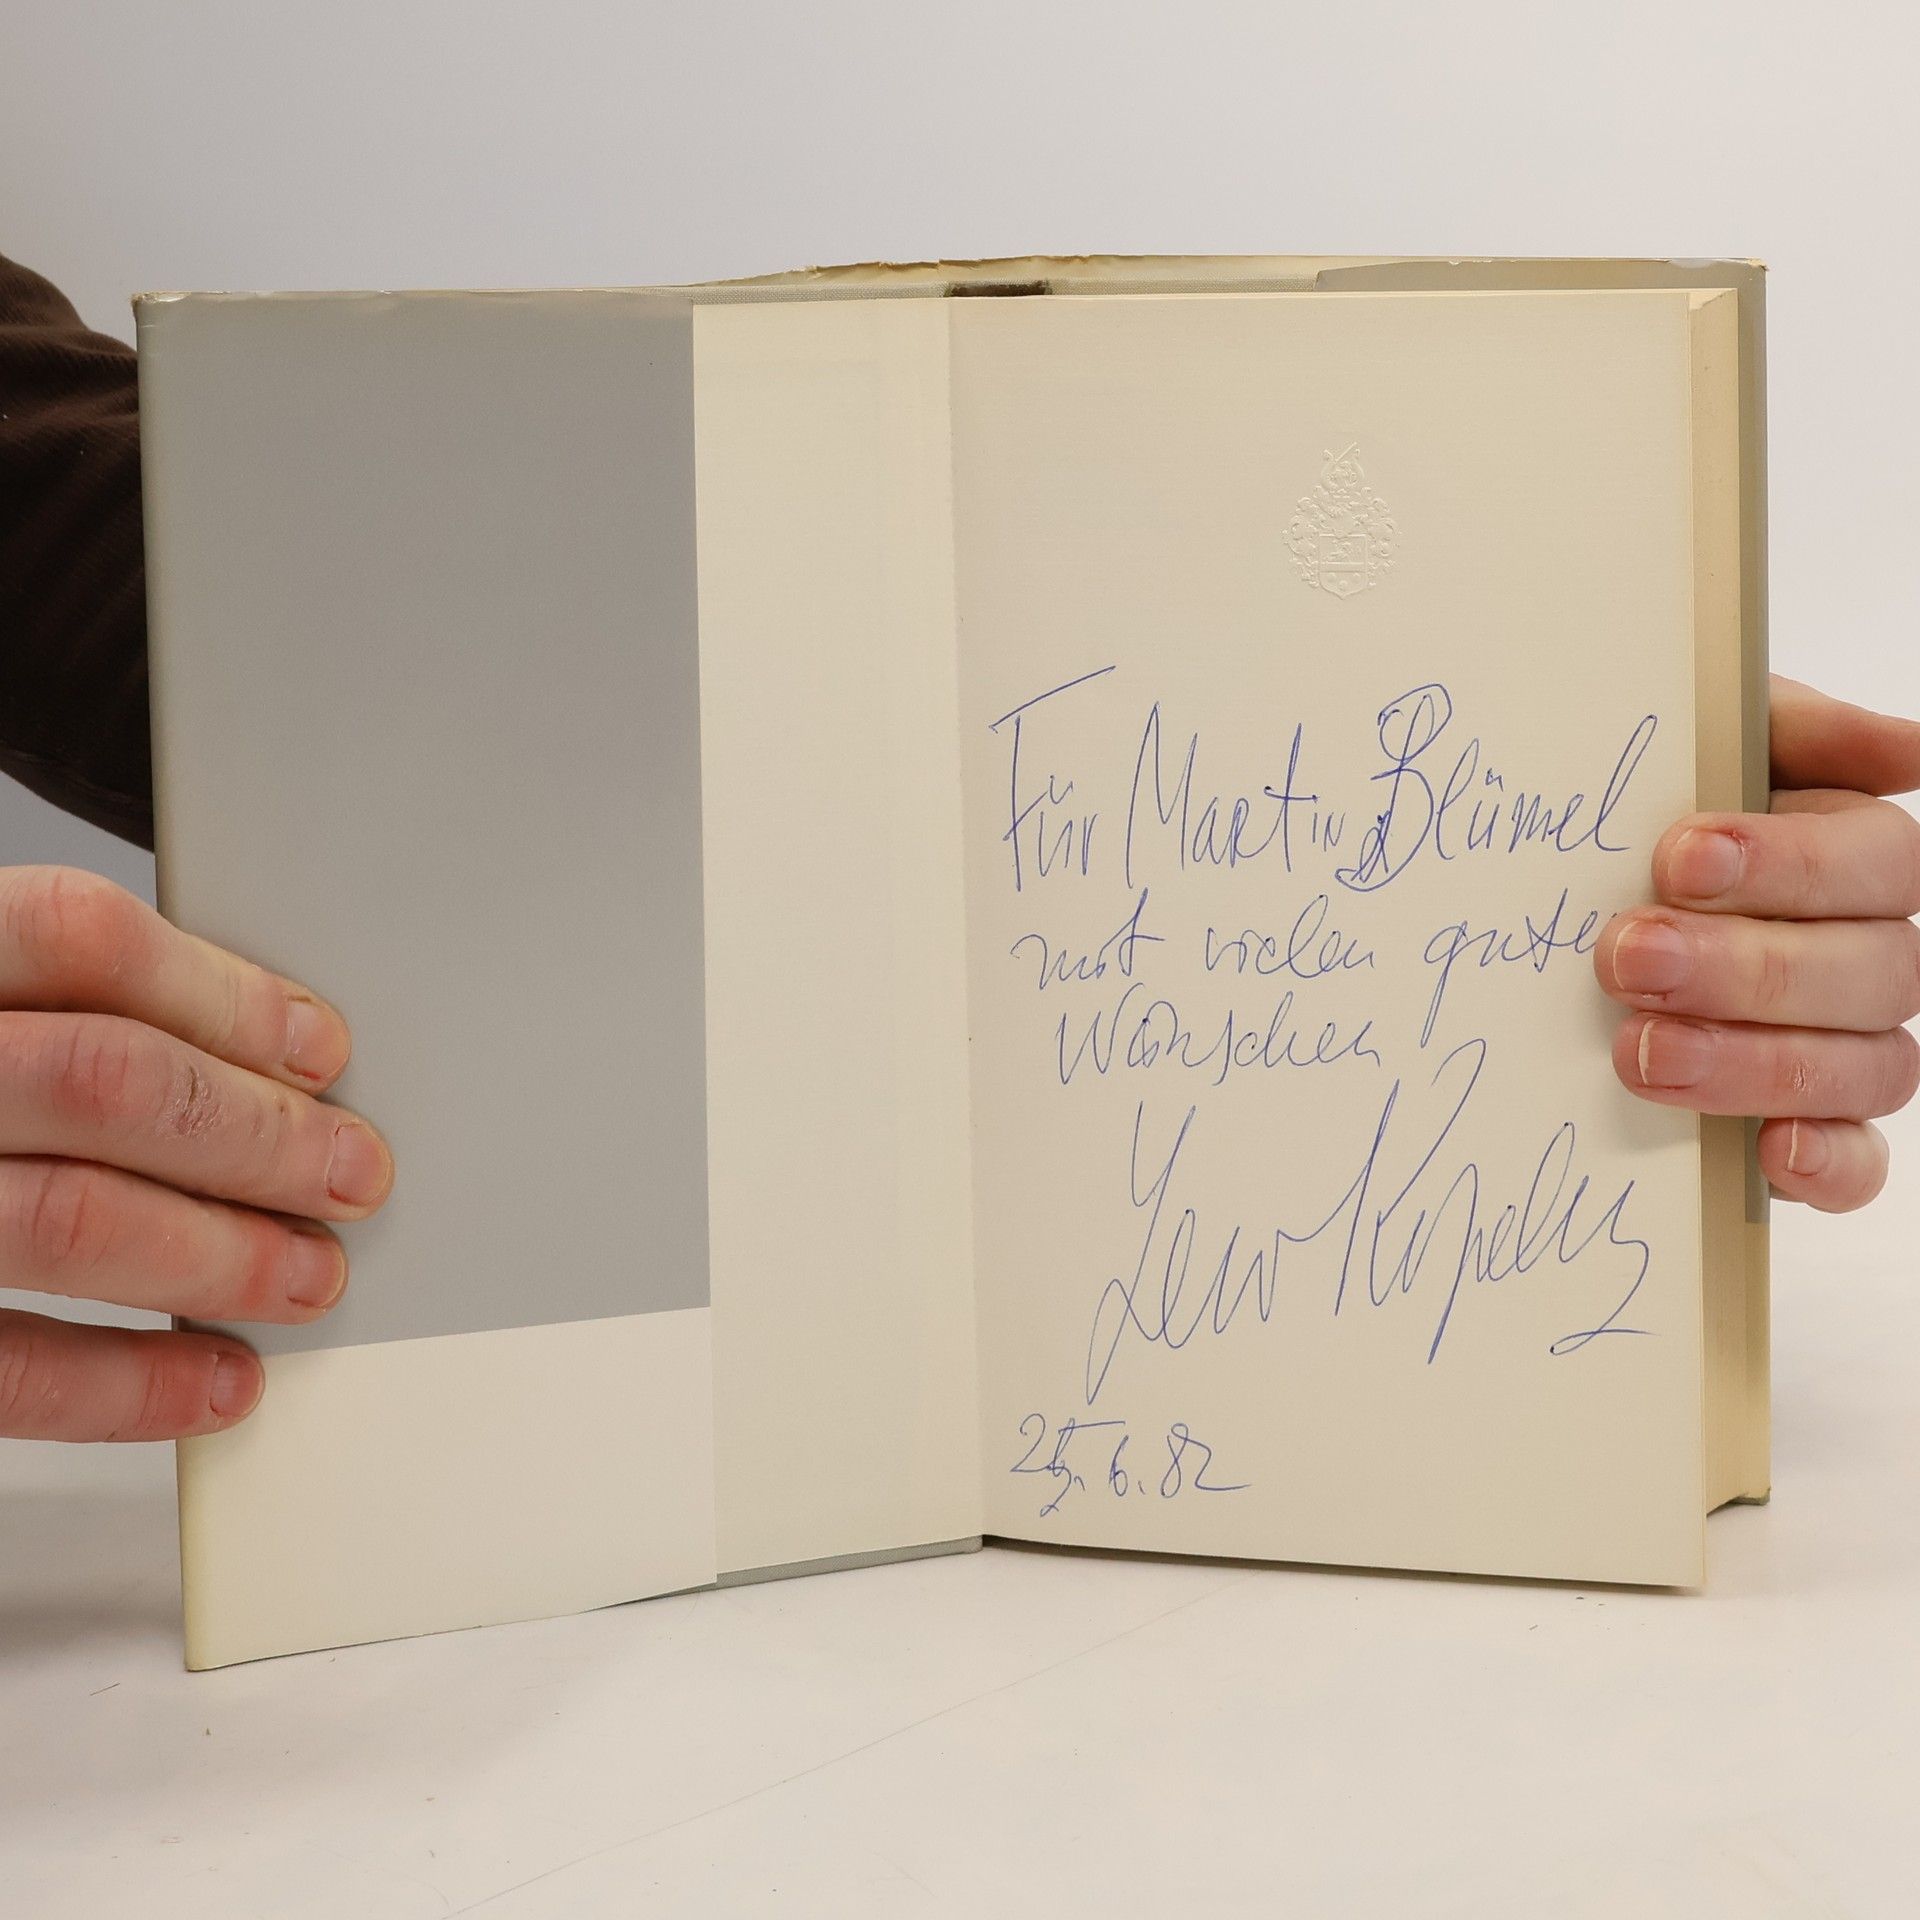 Für Martin Blümel
mit vielen guten
Wünschen
Lew Kopelew
25.6.82